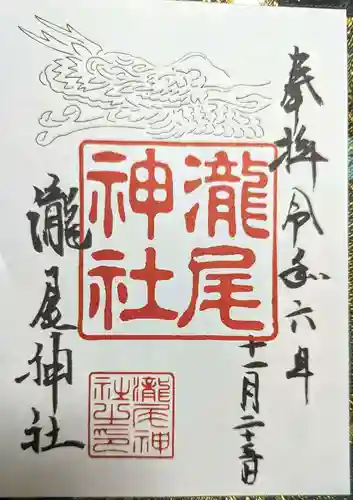 奉拝
令和六年
十一月二十三日
瀧尾神社
瀧尾神社
瀧尾神社之印